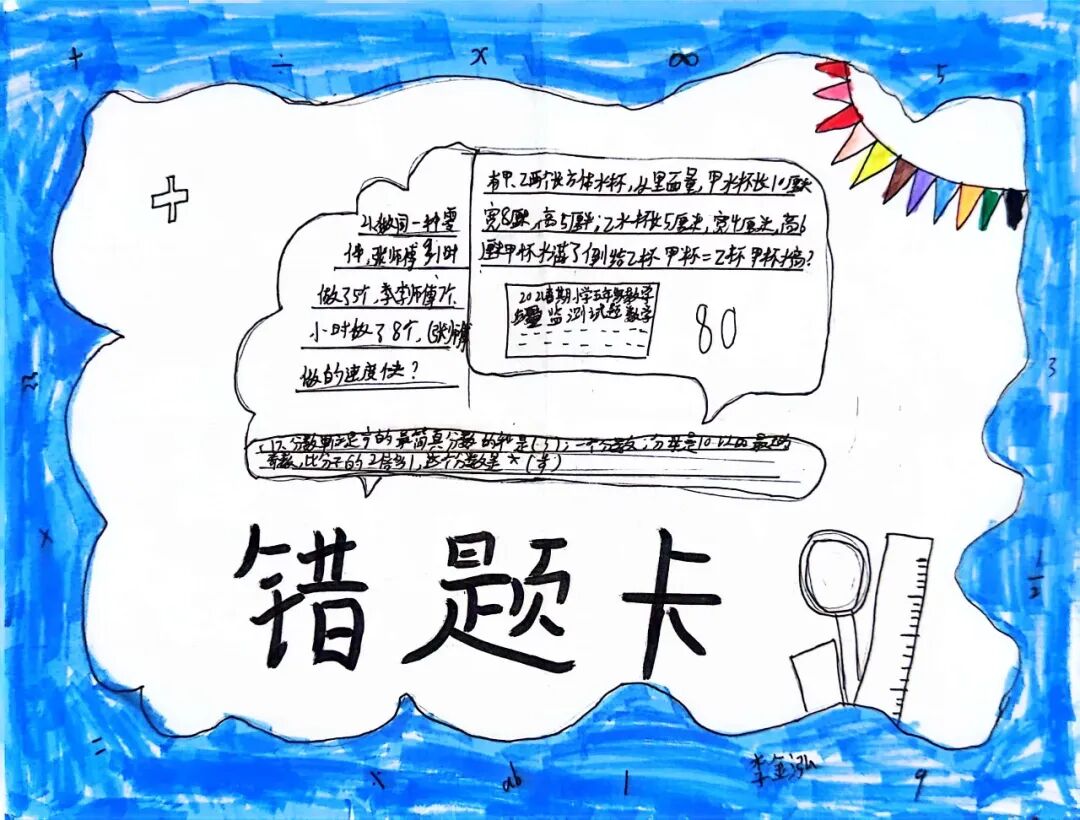 + ÷ x ∞ 5
有甲、乙两个长方体水杯,从里面量,甲水杯长10厘米
宽8厘米,高5厘米;乙水杯长5厘米,宽4厘米,高6
厘米甲杯水满了倒给乙杯 甲杯=乙杯 甲杯水高?
2021春期小学五年级数学
质量监测试题数学
80
4.做同一种零
件,张师傅多小时
做了5个,李师傅
小时做了8个,(张师傅
做的速度快?
12.分数单位是的最简真分数的和是( );一个分数,分母是10以内最大的
奇数,比分子的2倍多1,这个分数是
错题卡
≈
3
x
1/2
=
ab
1
李金泓
9